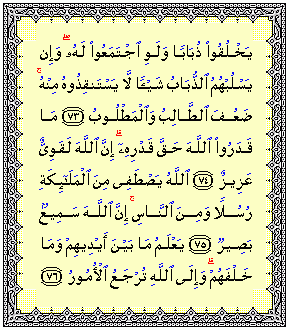 يَخْلُقُوا۟ ذُبَابًا وَلَوِ ٱجْتَمَعُوا۟ لَهُۥ ۖ وَإِن
يَسْلُبْهُمُ ٱلذُّبَابُ شَيْـًٔا لَّا يَسْتَنقِذُوهُ مِنْهُ ۚ
ضَعُفَ ٱلطَّالِبُ وَٱلْمَطْلُوبُ ٧٣ مَا
قَدَرُوا۟ ٱللَّهَ حَقَّ قَدْرِهِۦٓ ۗ إِنَّ ٱللَّهَ لَقَوِىٌّ
عَزِيزٌ ٧٤ ٱللَّهُ يَصْطَفِى مِنَ ٱلْمَلَـٰٓئِكَةِ
رُسُلًا وَمِنَ ٱلنَّاسِ ۚ إِنَّ ٱللَّهَ سَمِيعٌۢ
بَصِيرٌ ٧٥ يَعْلَمُ مَا بَيْنَ أَيْدِيهِمْ وَمَا
خَلْفَهُمْ ۗ وَإِلَى ٱللَّهِ تُرْجَعُ ٱلْأُمُورُ ٧٦